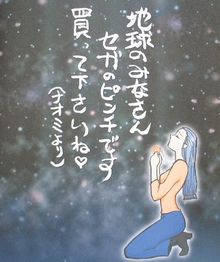 地球のみなさん
セガのピンチです
買って下さいね♡
(ナオミより)